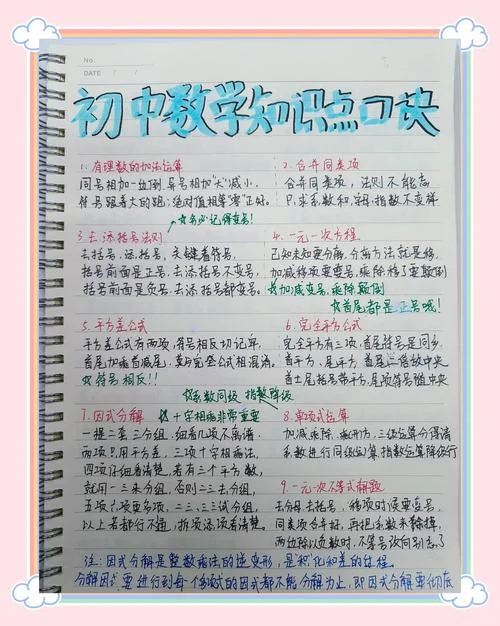 No.
DATE / /
初中数学知识点口诀
1. 有理数的加法运算
同号相加一边倒,异号相加"大"减小,
符号跟着大的跑;绝对值相等"零"正好。
☆务必记得变号!
2. 合并同类项
合并同类项,法则不能忘
只求系数和,字母、指数不变样
3. 去、添括号法则
去括号、添括号,关键看符号,
括号前面是正号,去添括号不变号,
括号前面是负号,去添括号都变号。
4. 一元一次方程
已知未知要分离,分离方法就是移,
加减移项要变号,乘除移了要颠倒
☆加减变号,乘除颠倒
☆首尾都是正号哦!
5. 平方差公式
平方差公式有两项,符号相反切记牢,
首尾加首尾减尾,莫与完全公式相混淆。
☆符号相反!!
6. 完全平方公式
完全平方有三项,首尾符号是同乡,
首平方、尾平方,首尾二倍放中央
首±尾括号带平方,尾项符号随中央
☆系数同级,指数降级
7. 因式分解
☆十字相乘非常重要
一提二套三分组,细看几项不离谱,
两项只用平方差,三项十字相乘法,
四项仔细看清楚,若有三个平方数,
就用一三来分组,否则二三去分组,
五项、六项更多项,二三、三三试分组,
以上若都行不通,拆项、添项看清楚。
8. 单项式运算
加、减、乘、除、乘(开)方,三级运算分得清
系数进行同级运算,指数运算降级行
9. 一元一次不等式解题
去分母、去括号,移项时候要变号,
同类项合并好,再把系数来除掉,
两边除以负数时,不等号改向别忘了
注:因式分解是整式乘法的逆变形,是"积"化和差的过程。
分解因式要进行到每个多项式的因式都不能分解为止,即因式分解要彻底